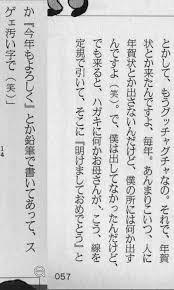 とかして、もうグッチャグチャなの。それで、年賀
状とか来たんですよ、毎年。あんまりこいつ、人に
年賀状とか出さないんだけど、僕の所には何か出す
んですよ（笑）。で、僕は出してなかったんだけど、
でも来ると、ハガキに何かお母さんが、こう、線を
定規で引いて、そこに『明けましておめでとう』と
か『今年もよろしく』とか鉛筆で書いてあって、ス
ゲェ汚い字で（笑）」
14
057